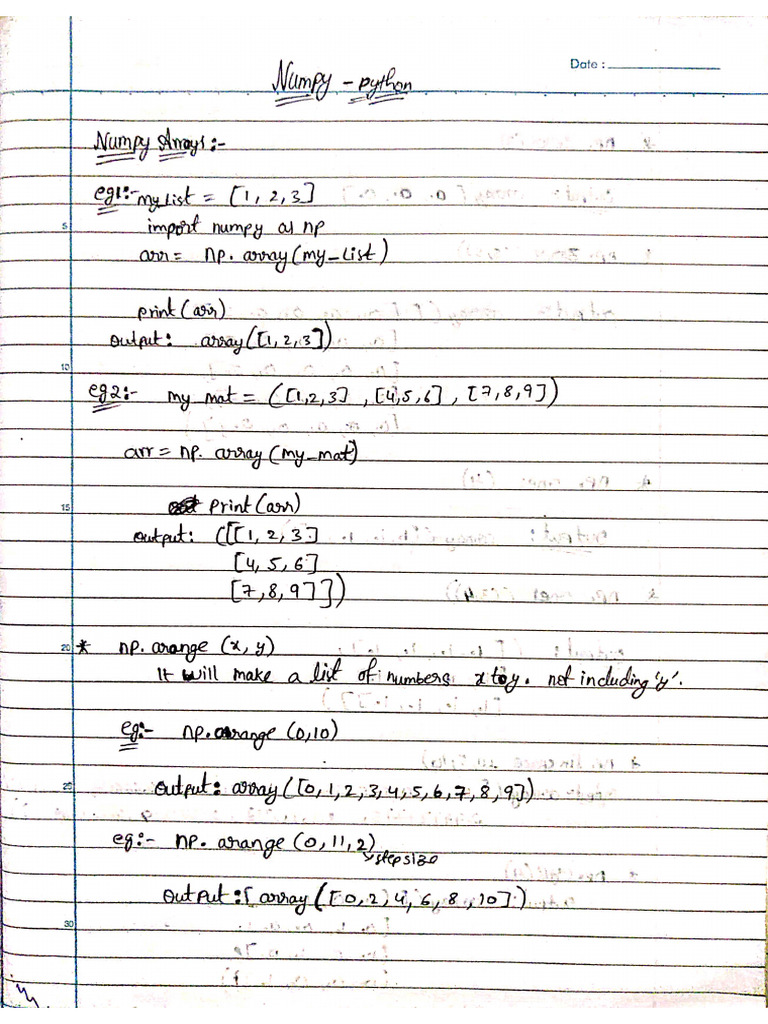 Date :
Numpy - python
Numpy Arrays:-
eg1:- myList = [1, 2, 3]
5
import numpy as np
arr = np.array(my_List)
print(arr)
output: array([1, 2, 3])
10
eg2:- my mat = ([1,2,3] , [4,5,6] , [7,8,9])
arr = np. array(my_mat)
15
print(arr)
output: ([[1, 2, 3]
[4, 5, 6]
[7, 8, 9]])
20
* np. arange (x, y)
It will make a list of numbers x to y. not including 'y'.
eg:- np.arange (0,10)
25
output: array([0, 1, 2, 3, 4, 5, 6, 7, 8, 9])
eg:- np. arange (0, 11, 2)
step size
output:[ array([0, 2, 4, 6, 8, 10])
30